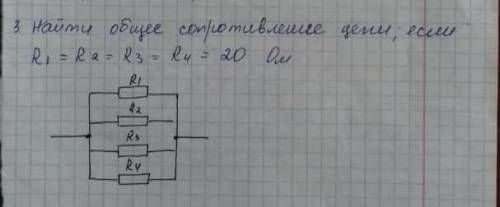 3. Найти общее сопротивление цепи, если
R1 = R2 = R3 = R4 = 20 Ом
R1
R2
R3
R4